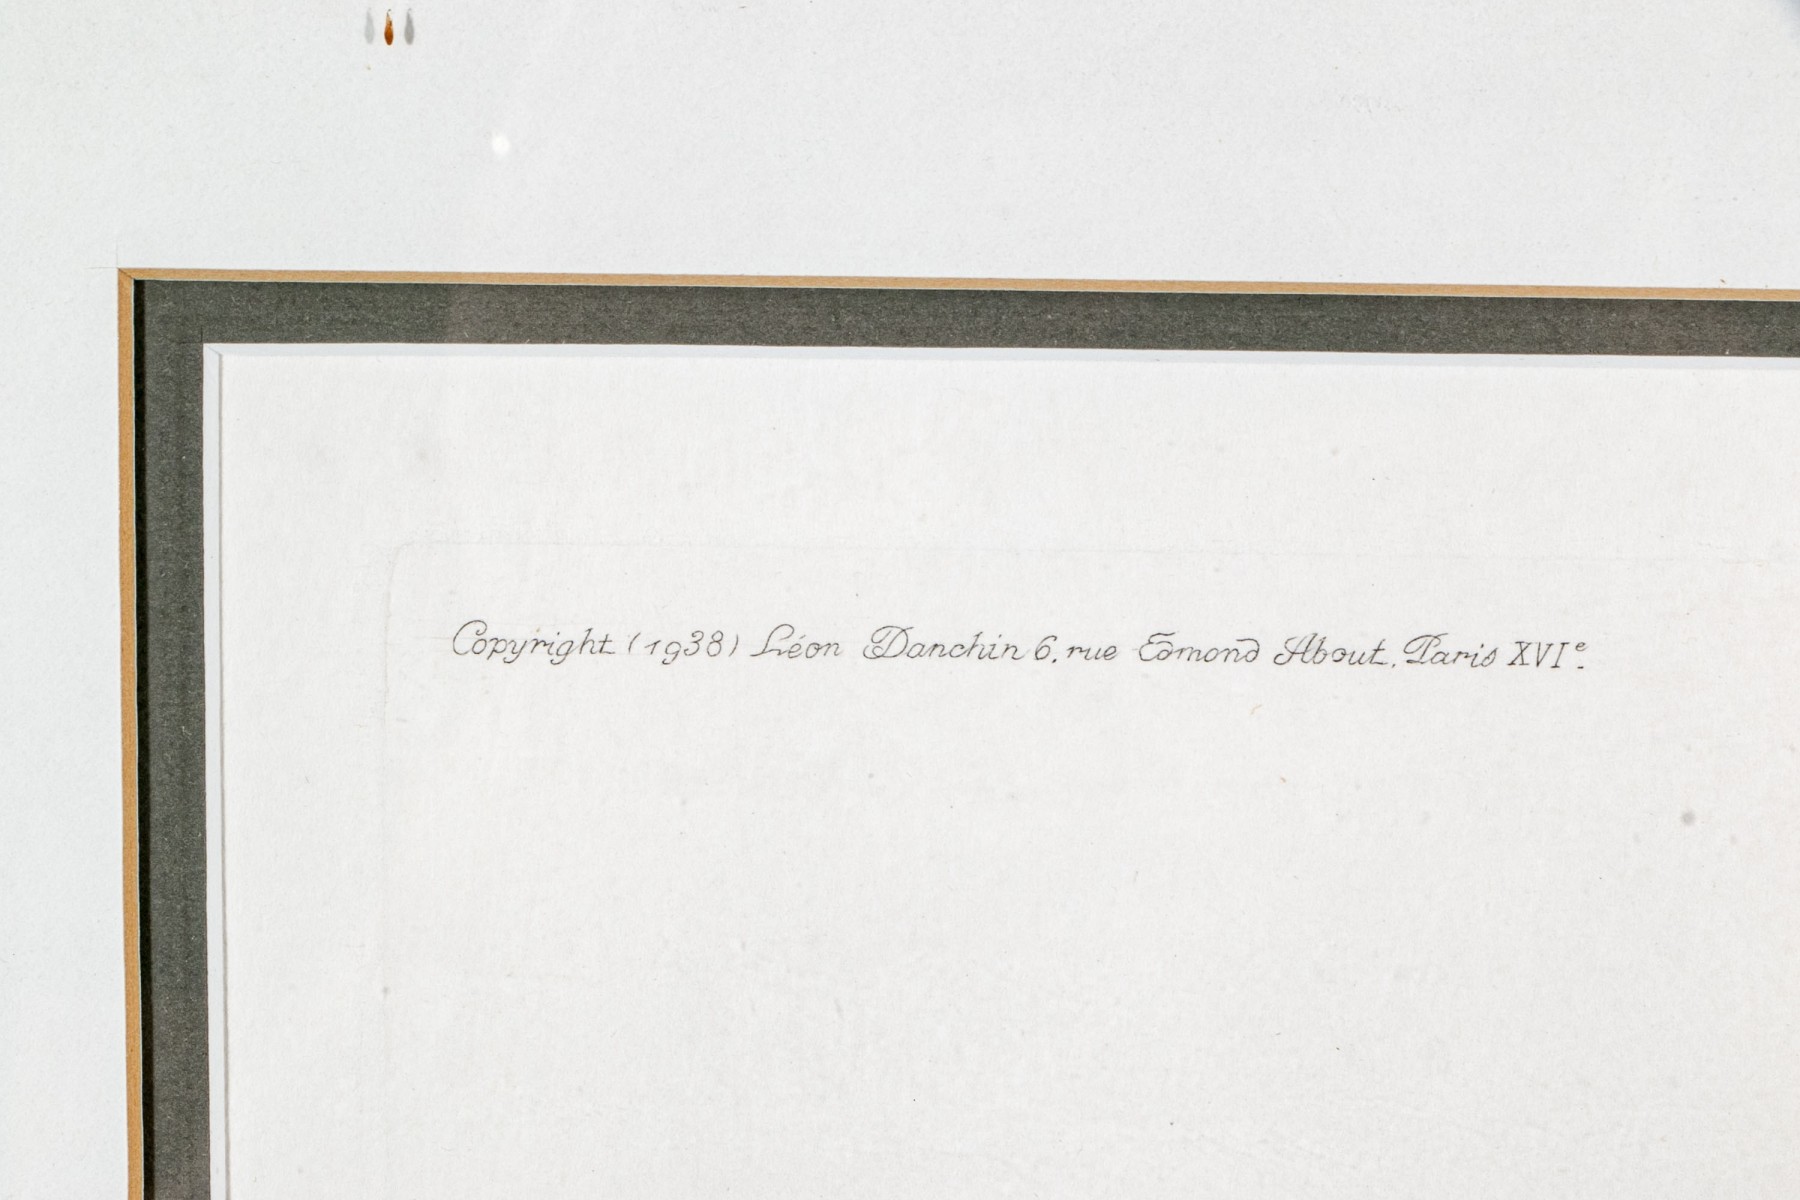 Copyright (1938) Léon Danchin 6, rue Edmond About, Paris XVIe.